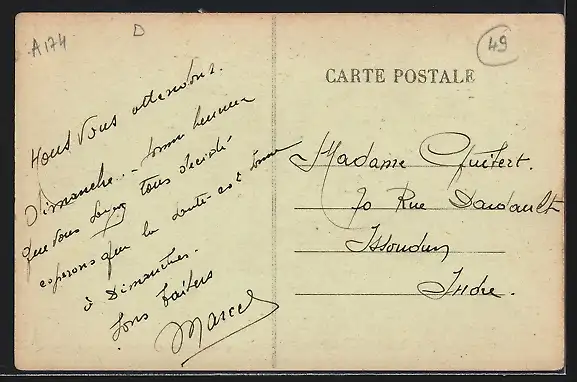 A174
D
49
CARTE POSTALE
Nous Vous attendons.
Dimanche.. - bonne heure
que vous soyez tous décidé
esperons que la santé est bonne
à Dimanche.
bons baisers
Marcel
Madame
70 Rue Dardault
Issoudun
Indre.